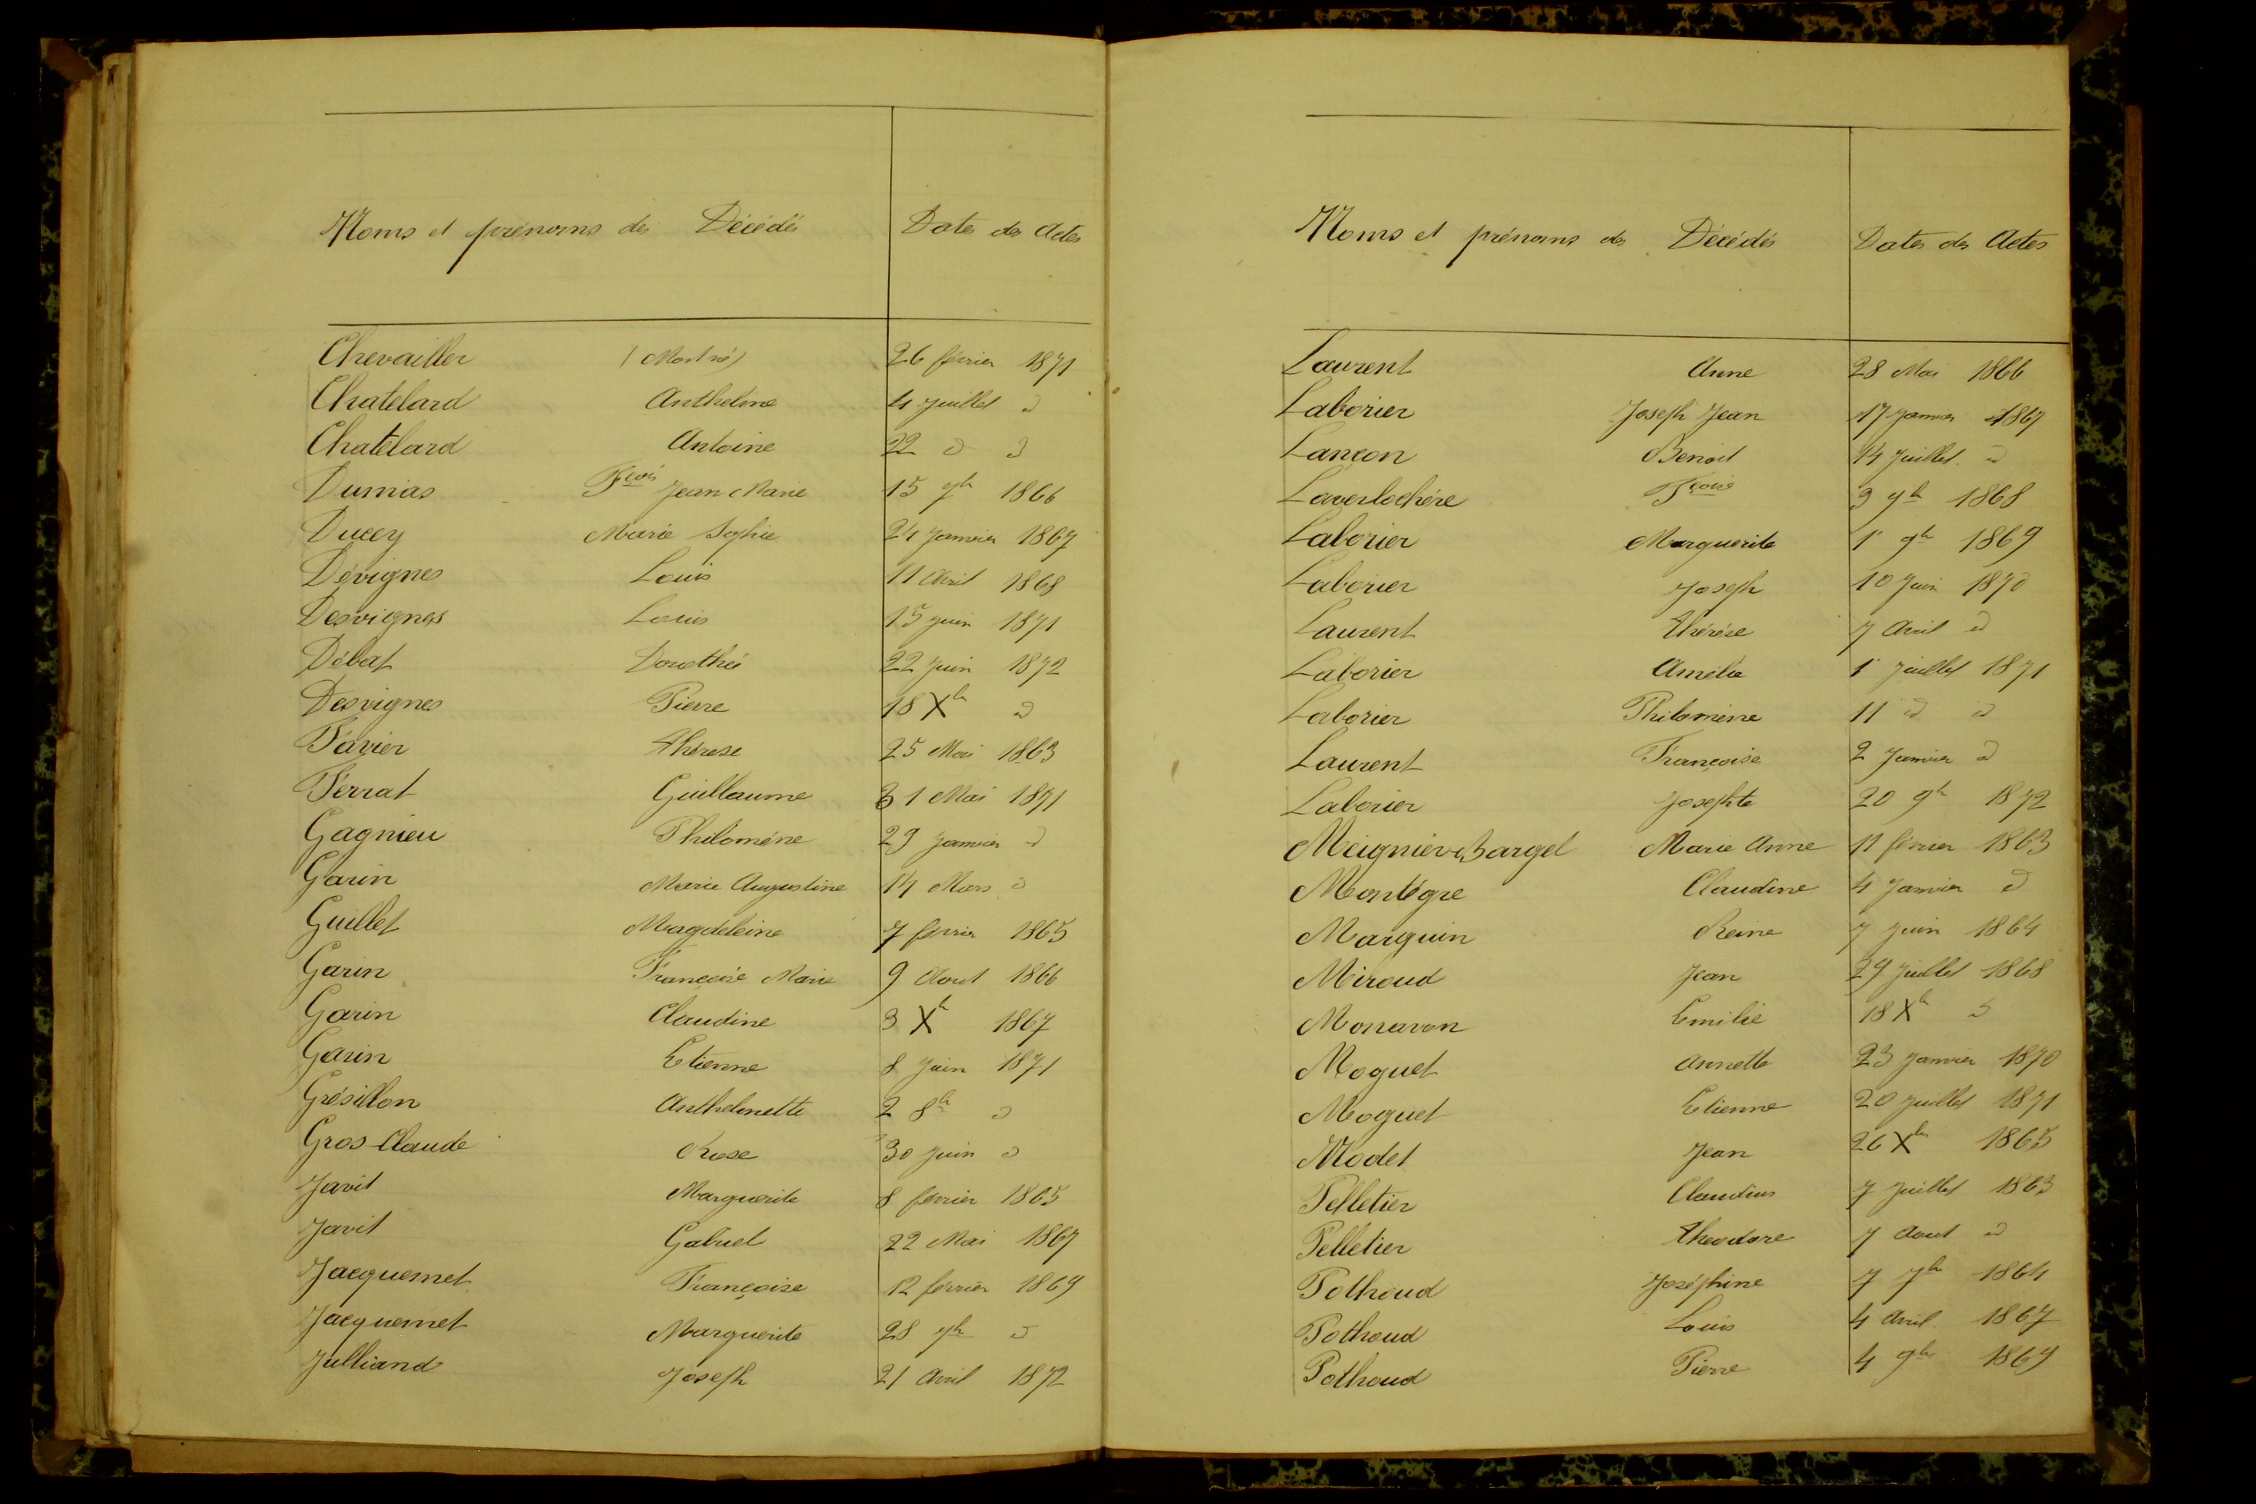 Noms et prénoms des Décédés Dates des Actes
Chevailler (Mort né) 26 février 1871
Chatelard Anthelme 4 Juillet d
Chatelard Antoine 22 d d
Dumas Fçois Jean Marie 15 7h 1866
Ducey Marie Sophie 24 Janvier 1867
Dévignes Louis 11 Avril 1868
Desvignes Louis 15 Juin 1871
Débat Dorothée 22 Juin 1872
Desvignes Pierre 18 Xh d
Favier Thérese 25 Mai 1863
Ferrat Guillaume 31 Mai 1871
Gagnieu Philomène 29 Janvier d
Garin Marie Augustine 14 Mars d
Guillet Magdeleine 7 février 1865
Garin Françoise Marie 9 Aout 1866
Garin Claudine 3 Xh 1867
Garin Etienne 8 Juin 1871
Grésillon Anthelmette 2 8h d
Gros-Claude Rose 30 Juin d
Javit Marguerite 8 février 1865
Javit Gabriel 22 Mai 1867
Jacquemet Françoise 12 février 1869
Jacquemet Marguerite 28 9h d
Julliand Joseph 21 Avril 1872
Noms et prénoms des Décédés Dates des Actes
Laurent Anne 28 Mai 1866
Laborier Joseph Jean 17 Janvier 1867
Lançon Benoit 14 Juillet d
Laverlochére Fçois 3 9h 1868
Laborier Marguerite 1r 9h 1869
Laborier Joseph 10 Juin 1870
Laurent Thérèse 7 Avril d
Laborier Amélie 1r Juillet 1871
Laborier Philomène 11 d d
Laurent Françoise 2 Janvier d
Laborier Josephte 20 9h 1872
Meignier-Bargel Marie Anne 11 février 1863
Montégre Claudine 4 Janvier d
Marguin Reine 7 Juin 1864
Miroud Jean 29 Juillet 1868
Monavon Emilie 18 Xh d
Moguet Annette 23 Janvier 1870
Moguet Etienne 20 Juillet 1871
Modet Jean 26 Xh 1865
Pelletier Claudius 7 Juillet 1863
Pelletier Théodore 7 Aout d
Pothoud Joséphine 7 7h 1864
Pothoud Louis 4 Avril 1867
Pothoud Pierre 4 9h 1869